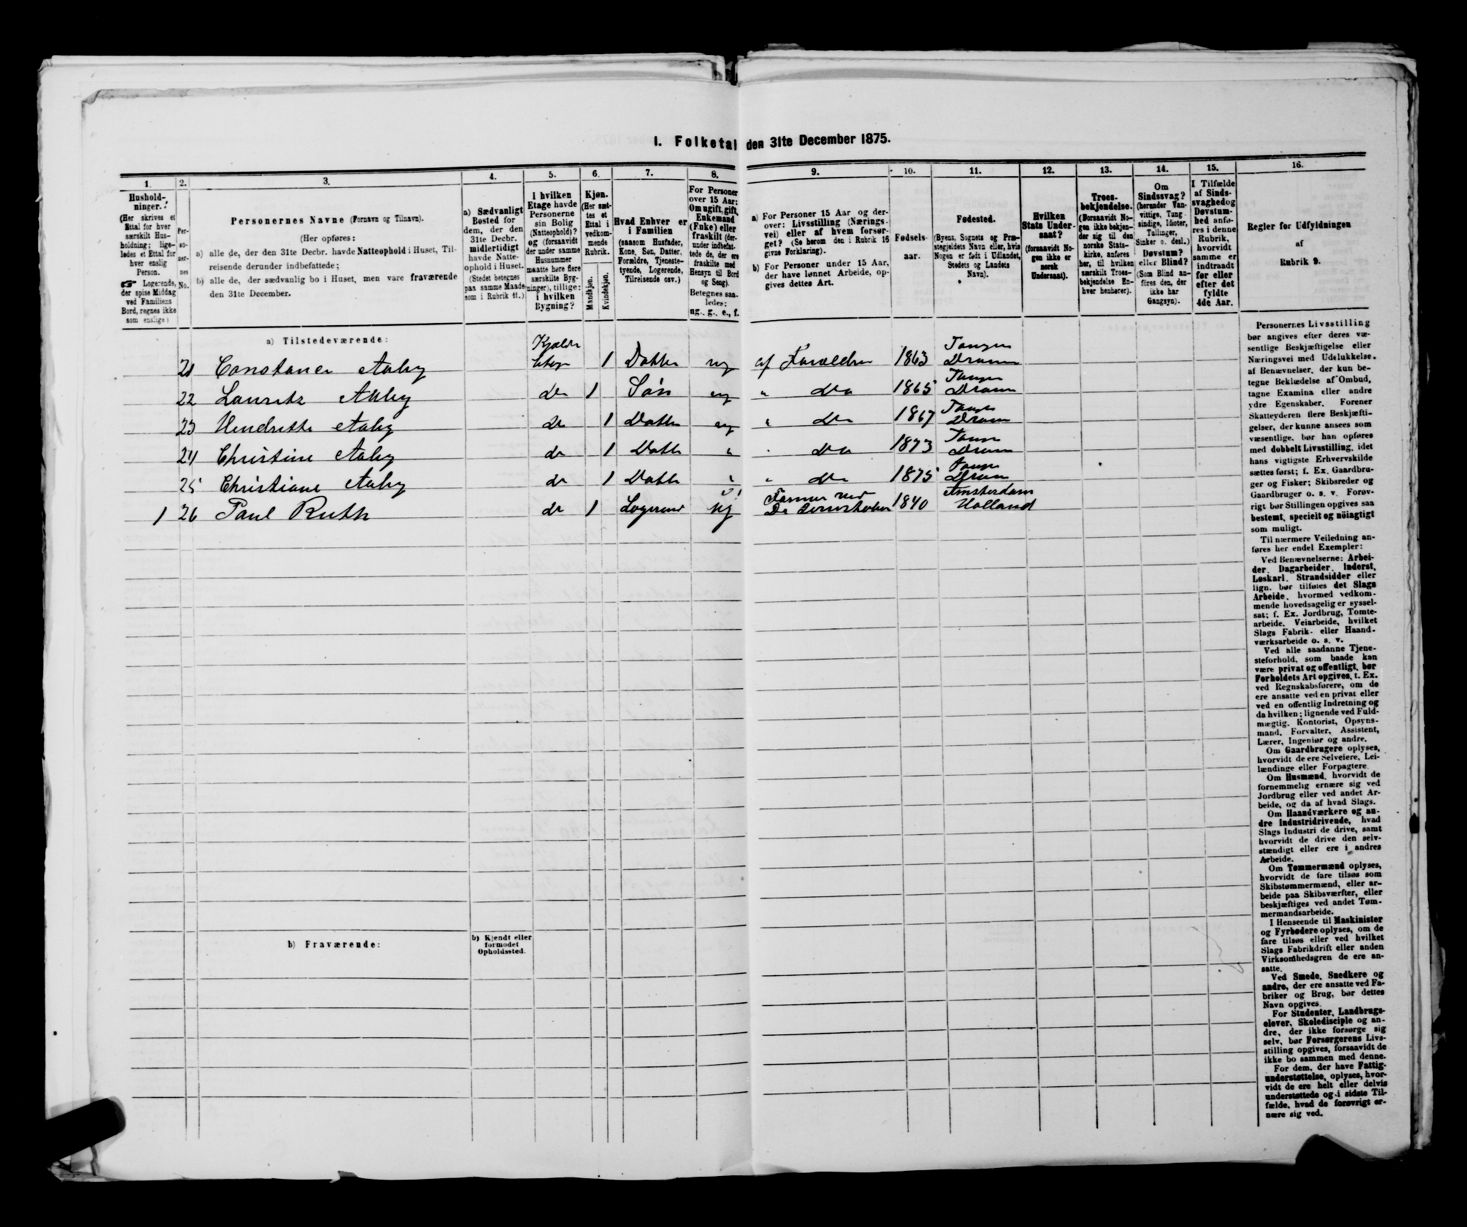 1. Folketal den 31te December 1875.
1.
Hushold-
ninger.
(Her skrives et
Ettal for hver
særskilt Hus-
holdning; lige-
ledes et Ettal for
hver enslig
Person.
☛ Logerende,
der spise Middag
ved Familiens
Bord, regnes ikke
som enslige.)
2.
Per-
so-
ner-
nes
No.
3.
Personernes Navne (Fornavn og Tilnavn).
(Her opføres:
a) alle de, der den 31te Decbr. havde Natteophold i Huset, Til-
reisende derunder indbefattede;
b) alle de, der sædvanlig bo i Huset, men vare fraværende
den 31te December.
4.
a) Sædvanligt
Bosted for
dem, der den
31te Decbr.
midlertidigt
havde Natte-
ophold i Huset.
(Stedet betegnes
paa samme Maade
som i Rubrik 11.)
5.
I hvilken
Etage havde
Personerne
sin Bolig
(Natteophold)?
og (forsaavidt
der under samme
Husnummer
maatte høre flere
særskilte Byg-
ninger), tillige:
i hvilken
Bygning?
6.
Kjøn.
(Her sæt-
tes et
Ettal i
vedkom-
mende
Rubrik.
Mandkjøn.
Kvindekjøn.
7.
Hvad Enhver er
i Familien
(saasom Husfader,
Kone, Søn, Datter,
Forældre, Tjeneste-
tyende, Logerende,
Tilreisende osv.)
8.
For Personer
over 15 Aar:
Om ugift, gift,
Enkemand
(Enke) eller
fraskilt (der-
under indbefat-
tede de, der ere
fraskilte med
Hensyn til Bord
og Seng).
Betegnes saa-
ledes:
ug., g., e., f.
9.
a) For Personer 15 Aar og der-
over: Livsstilling (Nærings-
vei) eller af hvem forsør-
get? (Se herom den i Rubrik 16
givne Forklaring).
b) For Personer under 15 Aar,
der have lønnet Arbeide, op-
gives dettes Art.
10.
Fødsels-
aar.
11.
Fødested.
(Byens, Sognets og Præ-
stegjeldets Navn eller, hvis
Nogen er født i Udlandet,
Stedets og Landets
Navn).
12.
Hvilken
Stats Under-
saat?
(forsaavidt No-
gen ikke er
norsk
Undersaat).
13.
Troes-
bekjendelse.
(Forsaavidt No-
gen ikke bekjen-
der sig til den
norske Stats-
kirke, anføres
her, til hvilken
særskilt Troes-
bekjendelse En-
hver henhører).
14.
Om
Sindssvag?
(herunder Van-
vittige, Tung-
sindige, Idioter,
Tullinger,
Sinker o. desl.)
Døvstum?
eller Blind?
(Som Blind an-
føres den, der
ikke har
Gangsyn).
15.
I Tilfælde
af Sinds-
svaghed og
Døvstum-
hed anfø-
res i denne
Rubrik,
hvorvidt
samme er
indtraadt
før eller
efter det
fyldte
4de Aar.
16.
Regler for Udfyldningen
af
Rubrik 9.
a) Tilstedeværende:
21 Constance Aaby Kjelder Etage 1 Datter ug af Foreldre 1863 Tangen Dramm
22 Lauritz Aaby do 1 Søn ug " do 1865 Tangen Dramm
23 Hendrette Aaby do 1 Datter ug " do 1867 Tangen Dramm
24 Christine Aaby do 1 Datter " " do 1873 Tangen Dramm
25 Christiane Aaby do 1 Datter " " do 1875 Tangen Dramm
1 26 Paul Ruth do 1 Logerend ug 1840 Amsterdam Holland
b) Fraværende:
b) Kjendt eller
formodet
Opholdssted.
Personernes Livsstilling
bør angives efter deres væ-
sentlige Beskjæftigelse eller
Næringsvei med Udelukkelse
af Benævnelser, der kun be-
tegne Beklædelse af Ombud,
tagne Examina eller andre
ydre Egenskaber. Forener
Skatteyderen flere Beskjæfti-
gelser, der kunne ansees som
væsentlige, bør han opføres
med dobbelt Livsstilling, idet
hans vigtigste Erhvervskilde
sættes først; f. Ex. Gaardbru-
ger og Fisker; Skibsreder og
Gaardbruger o. s. v. Forøv-
rigt bør Stillingen opgives saa
bestemt, specielt og nøiagtigt
som muligt.
Til nærmere Veiledning an-
føres her endel Exempler:
Ved Benævnelserne: Arbei-
der, Dagarbeider, Inderst,
Løskarl, Strandsidder eller
lign. bør tilføies det Slags
Arbeide, hvormed vedkom-
mende hovedsagelig er syssel-
sat; f. Ex. Jordbrug, Tomte-
arbeide, Veiarbeide, hvilket
Slags Fabrik- eller Haand-
værksarbeide o. s. v.
Ved alle saadanne Tjene-
steforhold, som baade kan
være privat og offentligt, bør
Forholdets Art opgives, t. Ex.
ved Regnskabsførere, om de
ere ansatte ved en privat eller
ved en offentlig Indretning og
da hvilken; lignende ved Fuld-
mægtig, Kontorist, Opsyns-
mand, Forvalter, Assistent,
Lærer, Ingeniør og andre.
Om Gaardbrugere oplyses,
hvorvidt de ere Selveiere, Lei-
lændinge eller Forpagtere.
Om Husmænd, hvorvidt de
fornemmelig ernære sig ved
Jordbrug eller ved andet Ar-
beide, og da af hvad Slags.
Om Haandværkere og an-
dre Industridrivende, hvad
Slags Industri de drive, samt
hvorvidt de drive den selv-
stændigt eller ere i andres
Arbeide.
Om Tømmermænd oplyses,
hvorvidt de fare tilsøs som
Skibstømmermænd, eller ar-
beide paa Skibsværfter, eller
beskjæftiges ved andet Tøm-
mermandsarbeide.
I Henseende til Maskinister
og Fyrbødere oplyses, om de
fare tilsøs eller ved hvilket
Slags Fabrikdrift eller anden
Virksomhedsgren de ere an-
satte.
Ved Smede, Snedkere og
andre, der ere ansatte ved Fa-
briker og Brug, bør dettes
Navn opgives.
For Studenter, Landbrugs-
elever, Skoledisciple og an-
dre, der ikke forsørge sig
selv, bør Forsørgerens Livs-
stilling opgives, forsaavidt de
ikke bo sammen med denne.
For dem, der have Fattig-
understøttelse, oplyses, hvor-
vidt de ere helt eller delvis
understøttede og i sidste Til-
fælde, hvad de forøvrigt er-
nære sig ved.